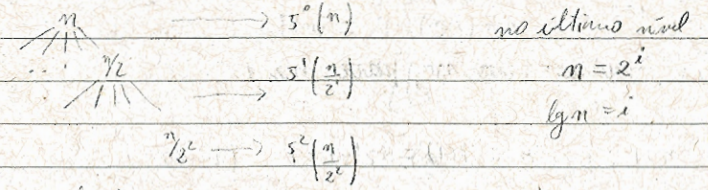 n → 5⁰(n) no último nível
... n/2 → 5¹(n/2¹) n = 2ⁱ
lg n = i
n/2² → 5²(n/2²)